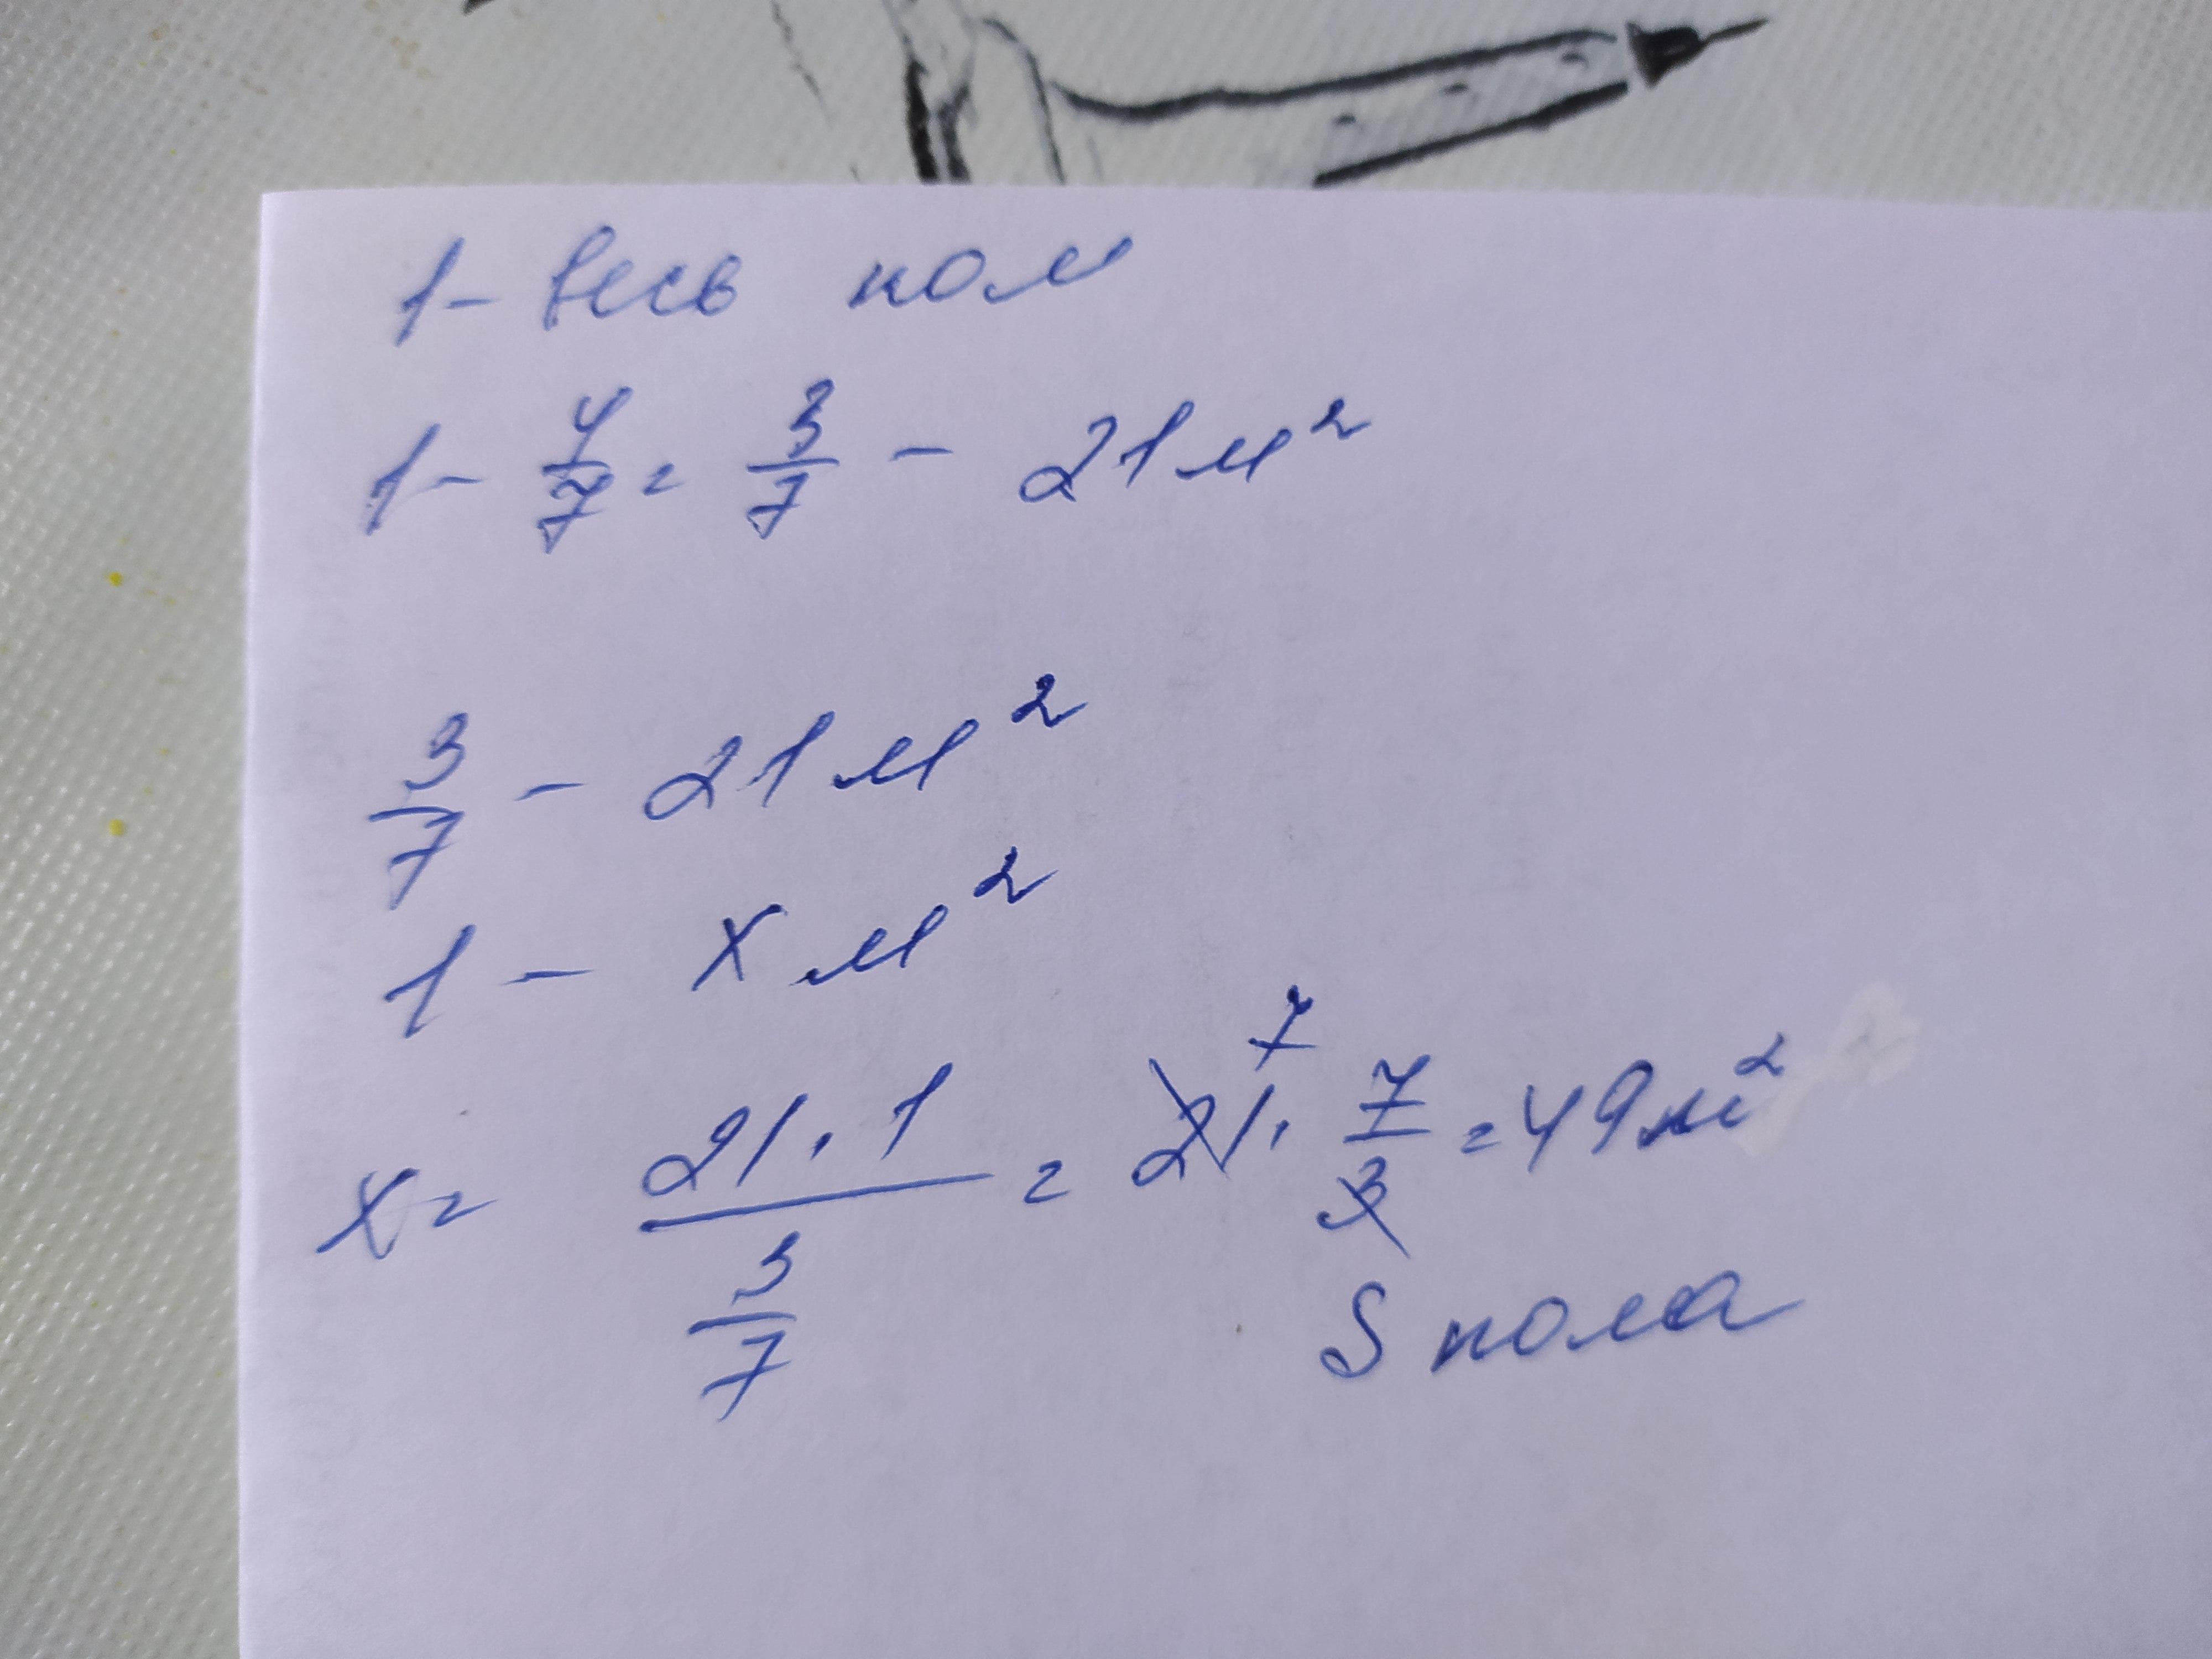 1 - весь пол
1 - 4/7 = 3/7 - 21 м²
3/7 - 21 м²
1 - x м²
x = (21 · 1)/(3/7) = 21 · 7/3 = 49 м²
7
S пола